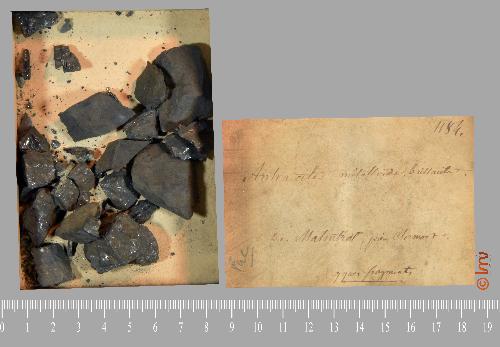 1184.
Anthracite métalloïde brillante.
De Malintrat, près Clermont.
qques fragments
0 1 2 3 4 5 6 7 8 9 10 11 12 13 14 15 16 17 18 19
© lmv